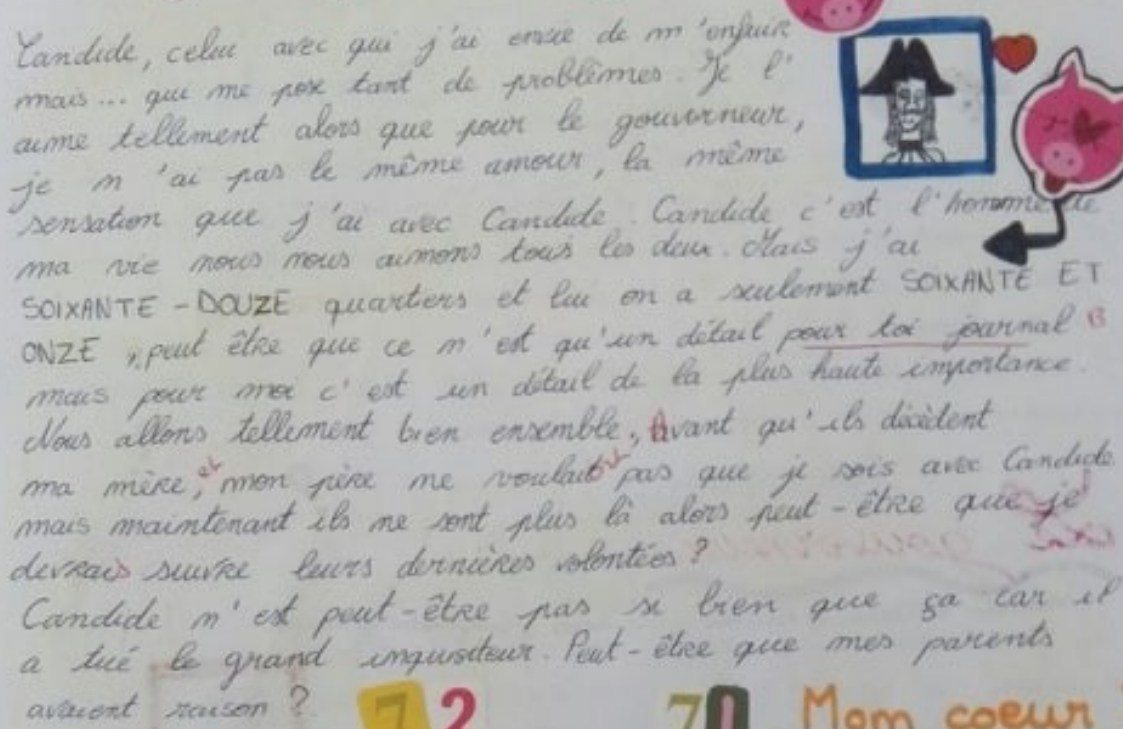 Candide, celui avec qui j'ai envie de m'enfuir
mais... qui me pose tant de problèmes. Je l'
aime tellement alors que pour le gouverneur,
je n'ai pas le même amour, la même
sensation que j'ai avec Candide. Candide c'est l'homme de
ma vie nous nous aimons tous les deux. Mais j'ai
SOIXANTE-DOUZE quartiers et lui en a seulement SOIXANTE ET
ONZE, peut être que ce n'est qu'un détail pour toi journal
mais pour moi c'est un détail de la plus haute importance.
Nous allons tellement bien ensemble, Avant qu'ils décèdent
ma mère, et mon père ne voulait pas que je sois avec Candide
mais maintenant ils ne sont plus là alors peut-être que je
devrais suivre leurs dernières volontées ?
Candide n'est peut-être pas si bien que ça car il
a tué le grand inquisiteur. Peut-être que mes parents
avaient raison ?
72 71 Mon coeur